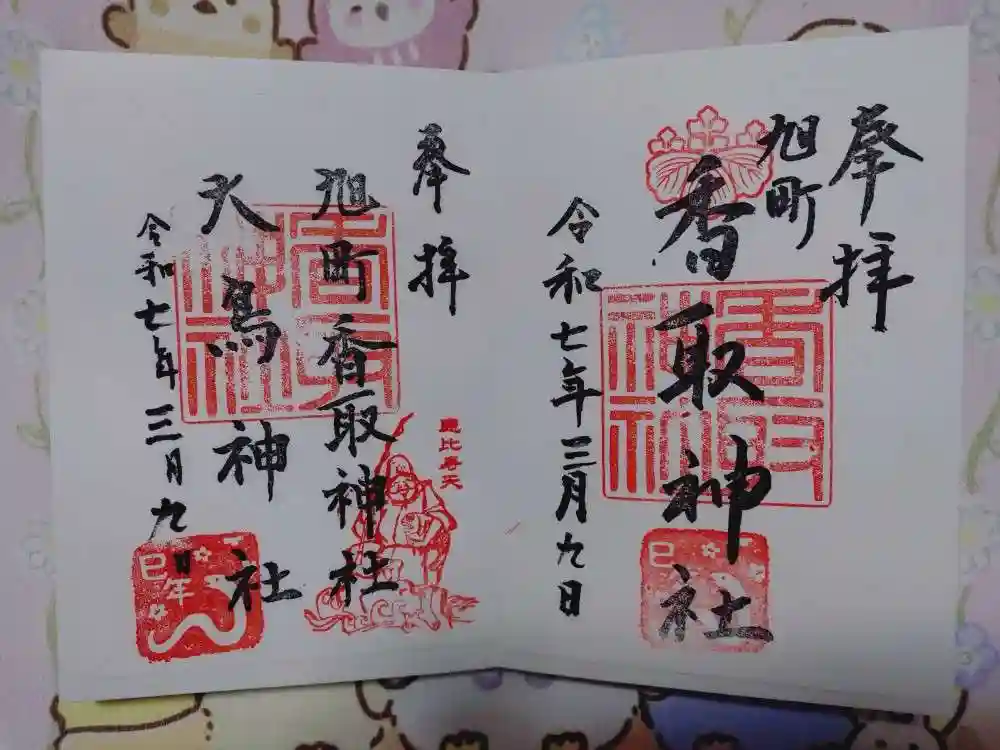 奉拝
旭町
香取神社
令和七年三月九日
香取神社
巳
奉拝
旭町香取神社
大鳥神社
令和七年三月九日
香取神社
恵比寿天
巳年